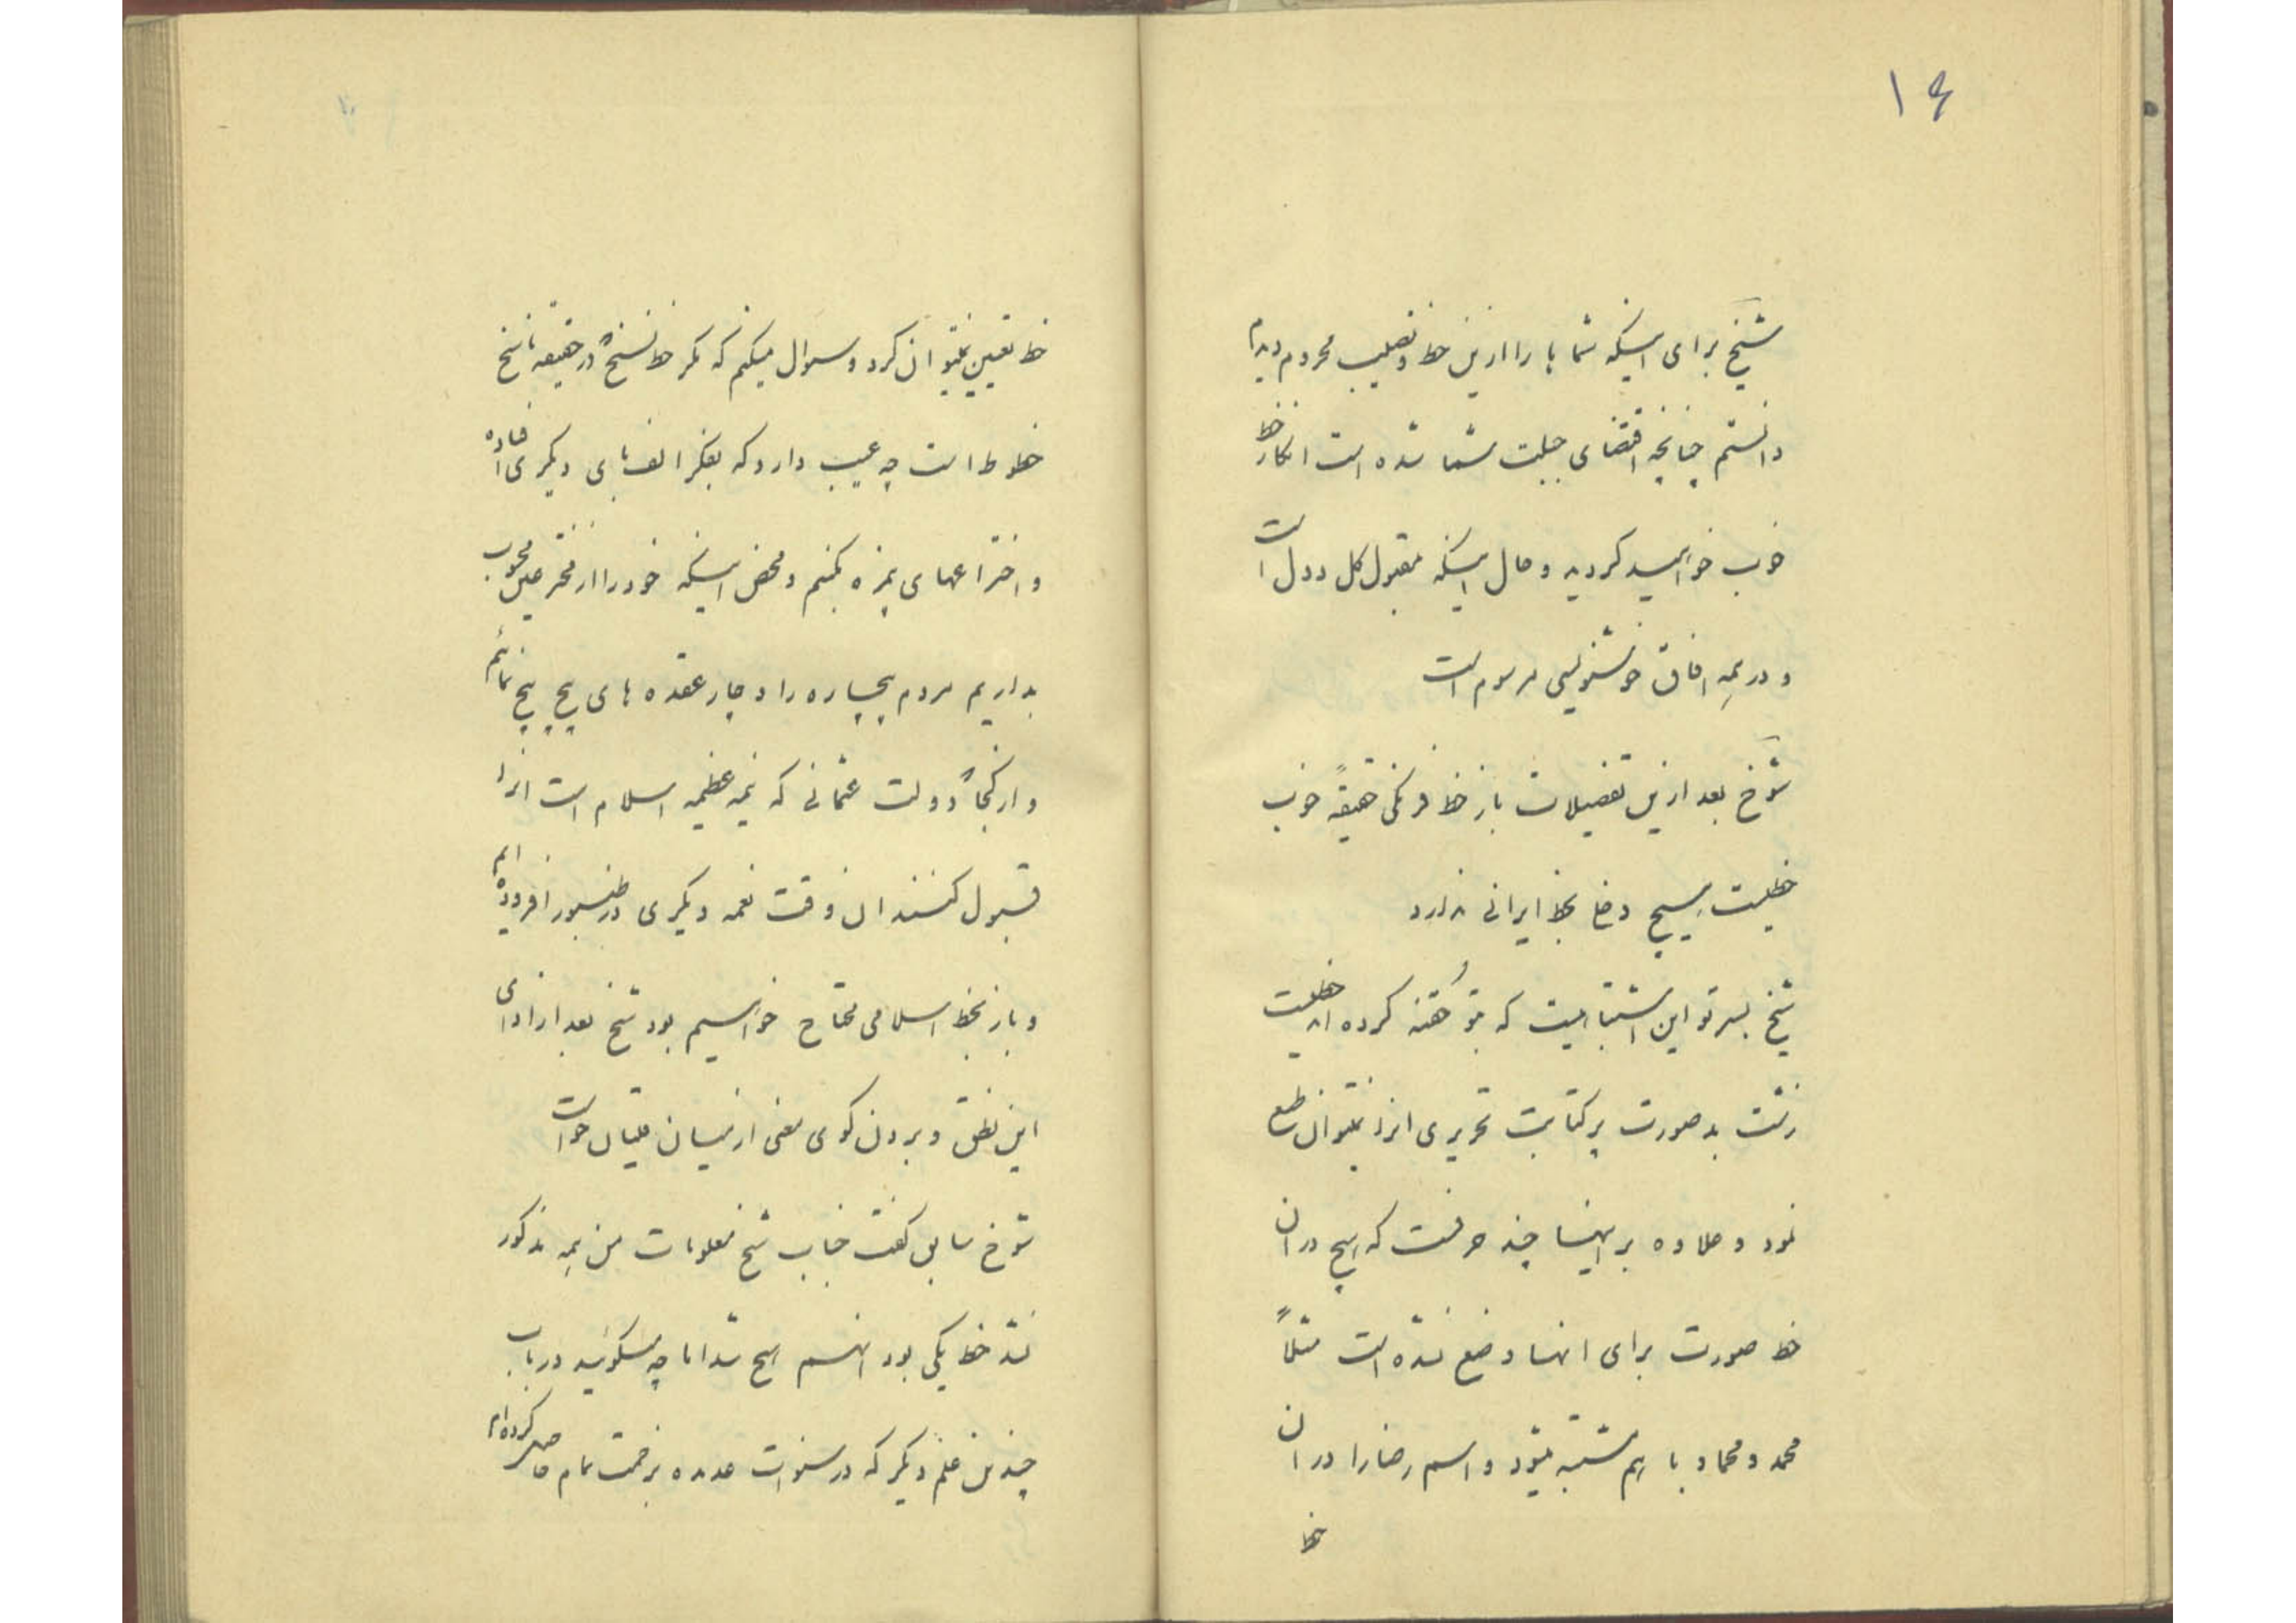 ١٤
شیخ برای اینکه شما ها را ازین خط و تصلیب محروم دیدم
دانستم چنانچه اقتضای جبلت شما شده است انکار خط
خوب خواهید کردید و حال اینکه مقبول کل دول است
و در همه افاق خوشنویسی مرسوم است
شوخ بعد ازین تفضیلات باز خط فرنکی حقیقةً خوب
خطیست هیچ دخل بخط ایرانی ندارد
شیخ پسر تو این اشتباهیست که بتو کفته کرده اند خطیست
زشت بد صورت پر کتابت تحریری انرا نمیتوان طبع
نمود و علاوه بر اینها چند حرفست که هیچ در ان
خط صورت برای انها وضع نشده است مثلاً
محمد و محماد با هم مشتبه میشود و اسم رضا را در ان
خط
خط تعیین نمیتوان کرد و سوال میکنم که مکر خط نسخ که در حقیقه ناسخ
خطوط است چه عیب دارد که بفکر الف بای دیکری افتاده
و اختراعهای بیمزه بکنیم و محض اینکه خود را از مخترعین محسوب
بداریم مردم بیچاره را دچار عقده های پیچ پیچ نمائیم
و از کجا که دولت عثمانی که نیمه عظیمه اسلام است انرا
قبول کنند ان وقت نغمه دیکری در طنبور افزوده ایم
و باز بخط اسلامی محتاج خواهیم بود شیخ بعد از ادای
این نطق و بردن کوی معنی از میان ملتیان خواست
شوخ سابق کفت جناب شیخ معلومات من همه مذکور
شد خط یکی بود انهم هیچ شد اما چه میکوئید در باب
چندین علم دیکر که در سنوات عدیده بزحمت تمام حاصل کرده ام